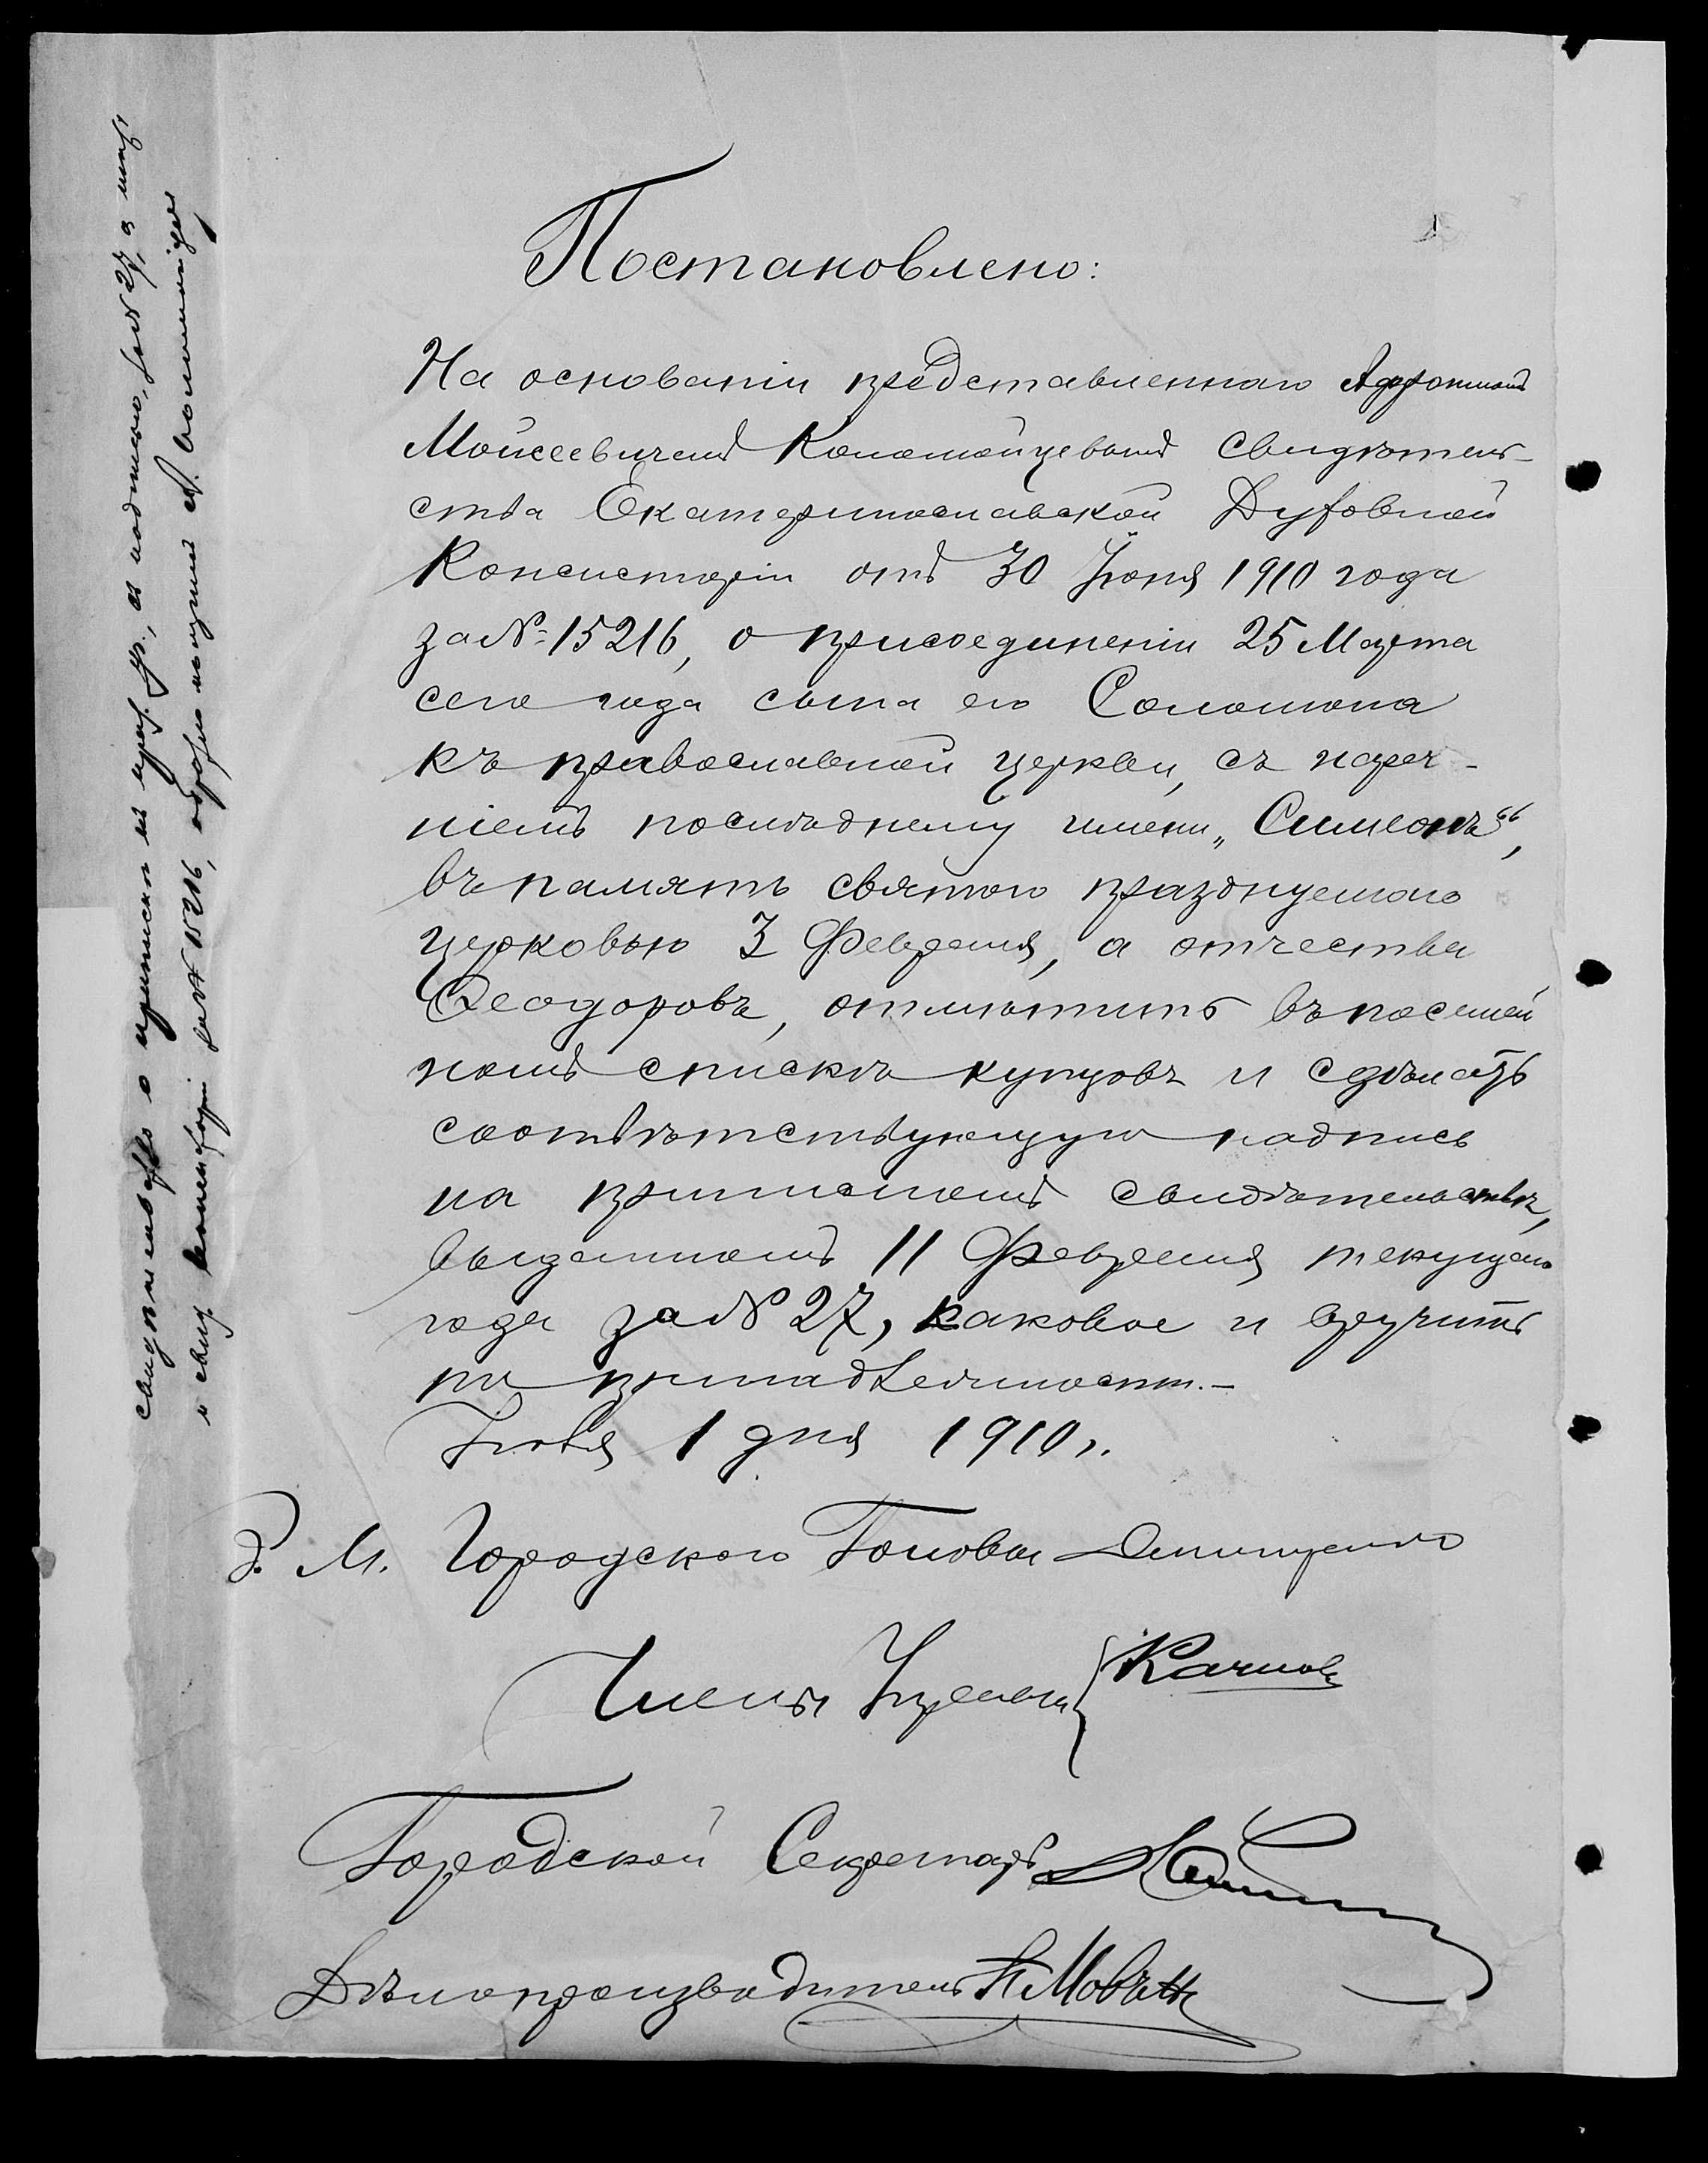 Постановлено:
На основаніи представленнаго
Моисеевичемъ Коломойцевымъ свидѣтель-
ства Екатеринославской Духовной
Консисторіи отъ 30 Іюня 1910 года
за № 15216, о присоединеніи 25 Марта
сего года сына его Соломона
къ православной церкви, съ нареч-
ніемъ послѣднему имени „Симеонъ“,
въ память святого празднуемаго
церковью 3 Февраля, а отчества
Ѳеодоровъ, отмѣтить въ посемей
номъ спискѣ купцовъ и сдѣлать
соотвѣтствующую надпись
на приписномъ свидѣтельствѣ,
выданномъ 11 Февраля текущаго
года за № 27, каковое и вручить
по принадлежност.-
1 дня 1910 г.
З. М. Городского Головы
Члены Управы Качновъ
Городской Секретарь
Дѣлопроизводитель Мовчан
свидѣтельство о припискѣ къ г., за № 27, а такъ
и свид консисторіи за № 15216, обратно получилъ А. Коломойцев